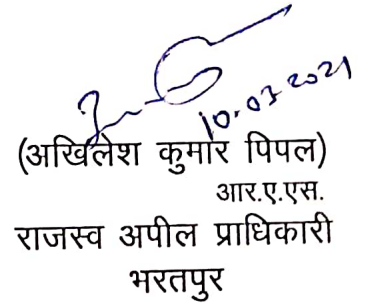 10.03.2021
(अखिलेश कुमार पिपल)
आर.ए.एस.
राजस्व अपील प्राधिकारी
भरतपुर